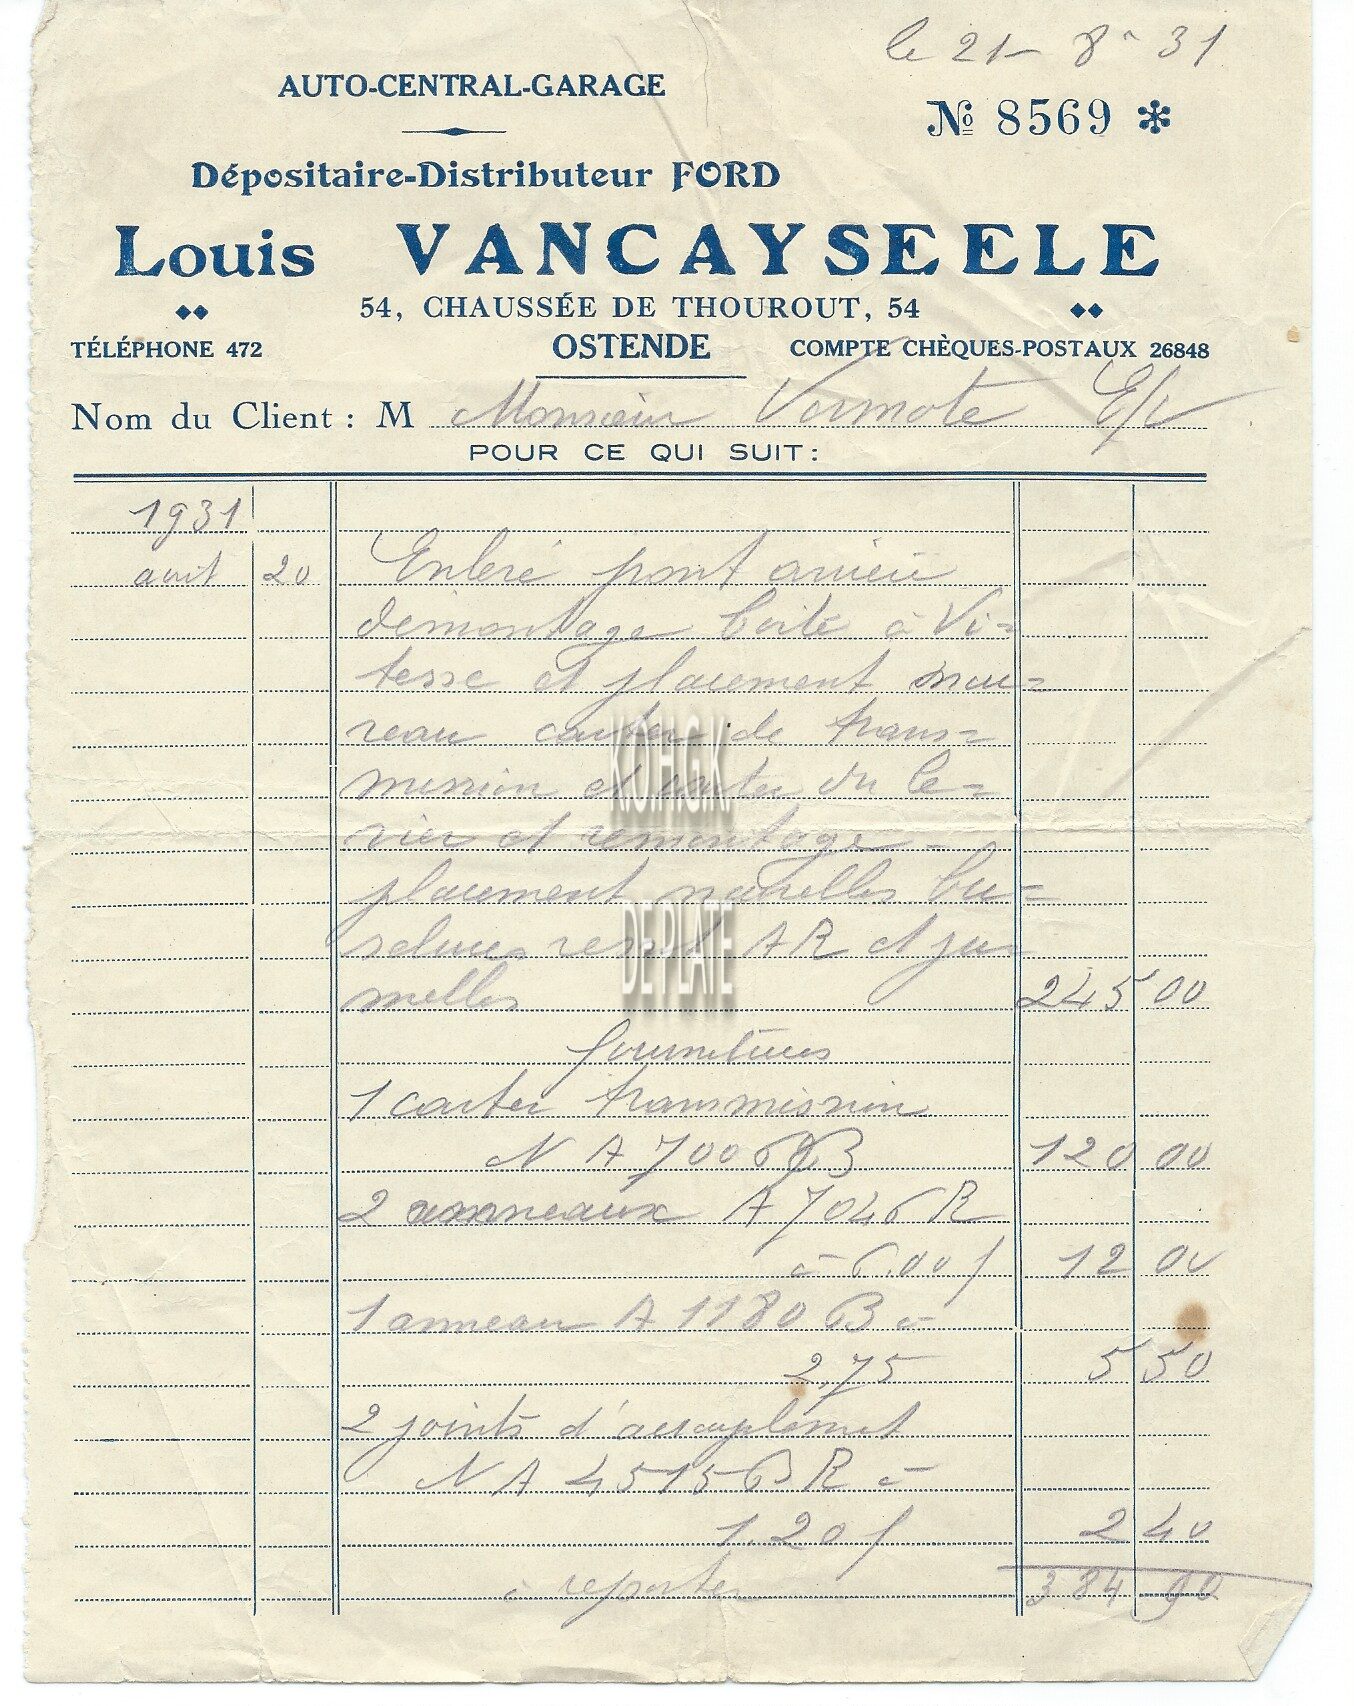 le 21- 8- 31
AUTO-CENTRAL-GARAGE
№ 8569 *
Dépositaire-Distributeur FORD
Louis VANCAYSEELE
54, CHAUSSÉE DE THOUROUT, 54
TÉLÉPHONE 472 OSTENDE COMPTE CHÈQUES-POSTAUX 26848
Nom du Client : M Monsieur Vermote E/V
POUR CE QUI SUIT :
1931
avril 20 Enlevé pont arrière
démontage boite à Vi=
tesse et placement nou=
veau carter de trans=
mission et carter du le=
vier et remontage -
placement nouvelles bu=
selures ressort AR et ju=
melles 245 00
fournitures
1 carter transmission
N A 7006 B 120 00
2 anneaux A 7046 R
à 6.00 f 12 00
1 anneau A 1180 B à
2,75 5 50
2 joints d'accouplement
N A 4515 BR à
1.20 f 2 40
à reporter 384 90
KOHGK
DE PLATE